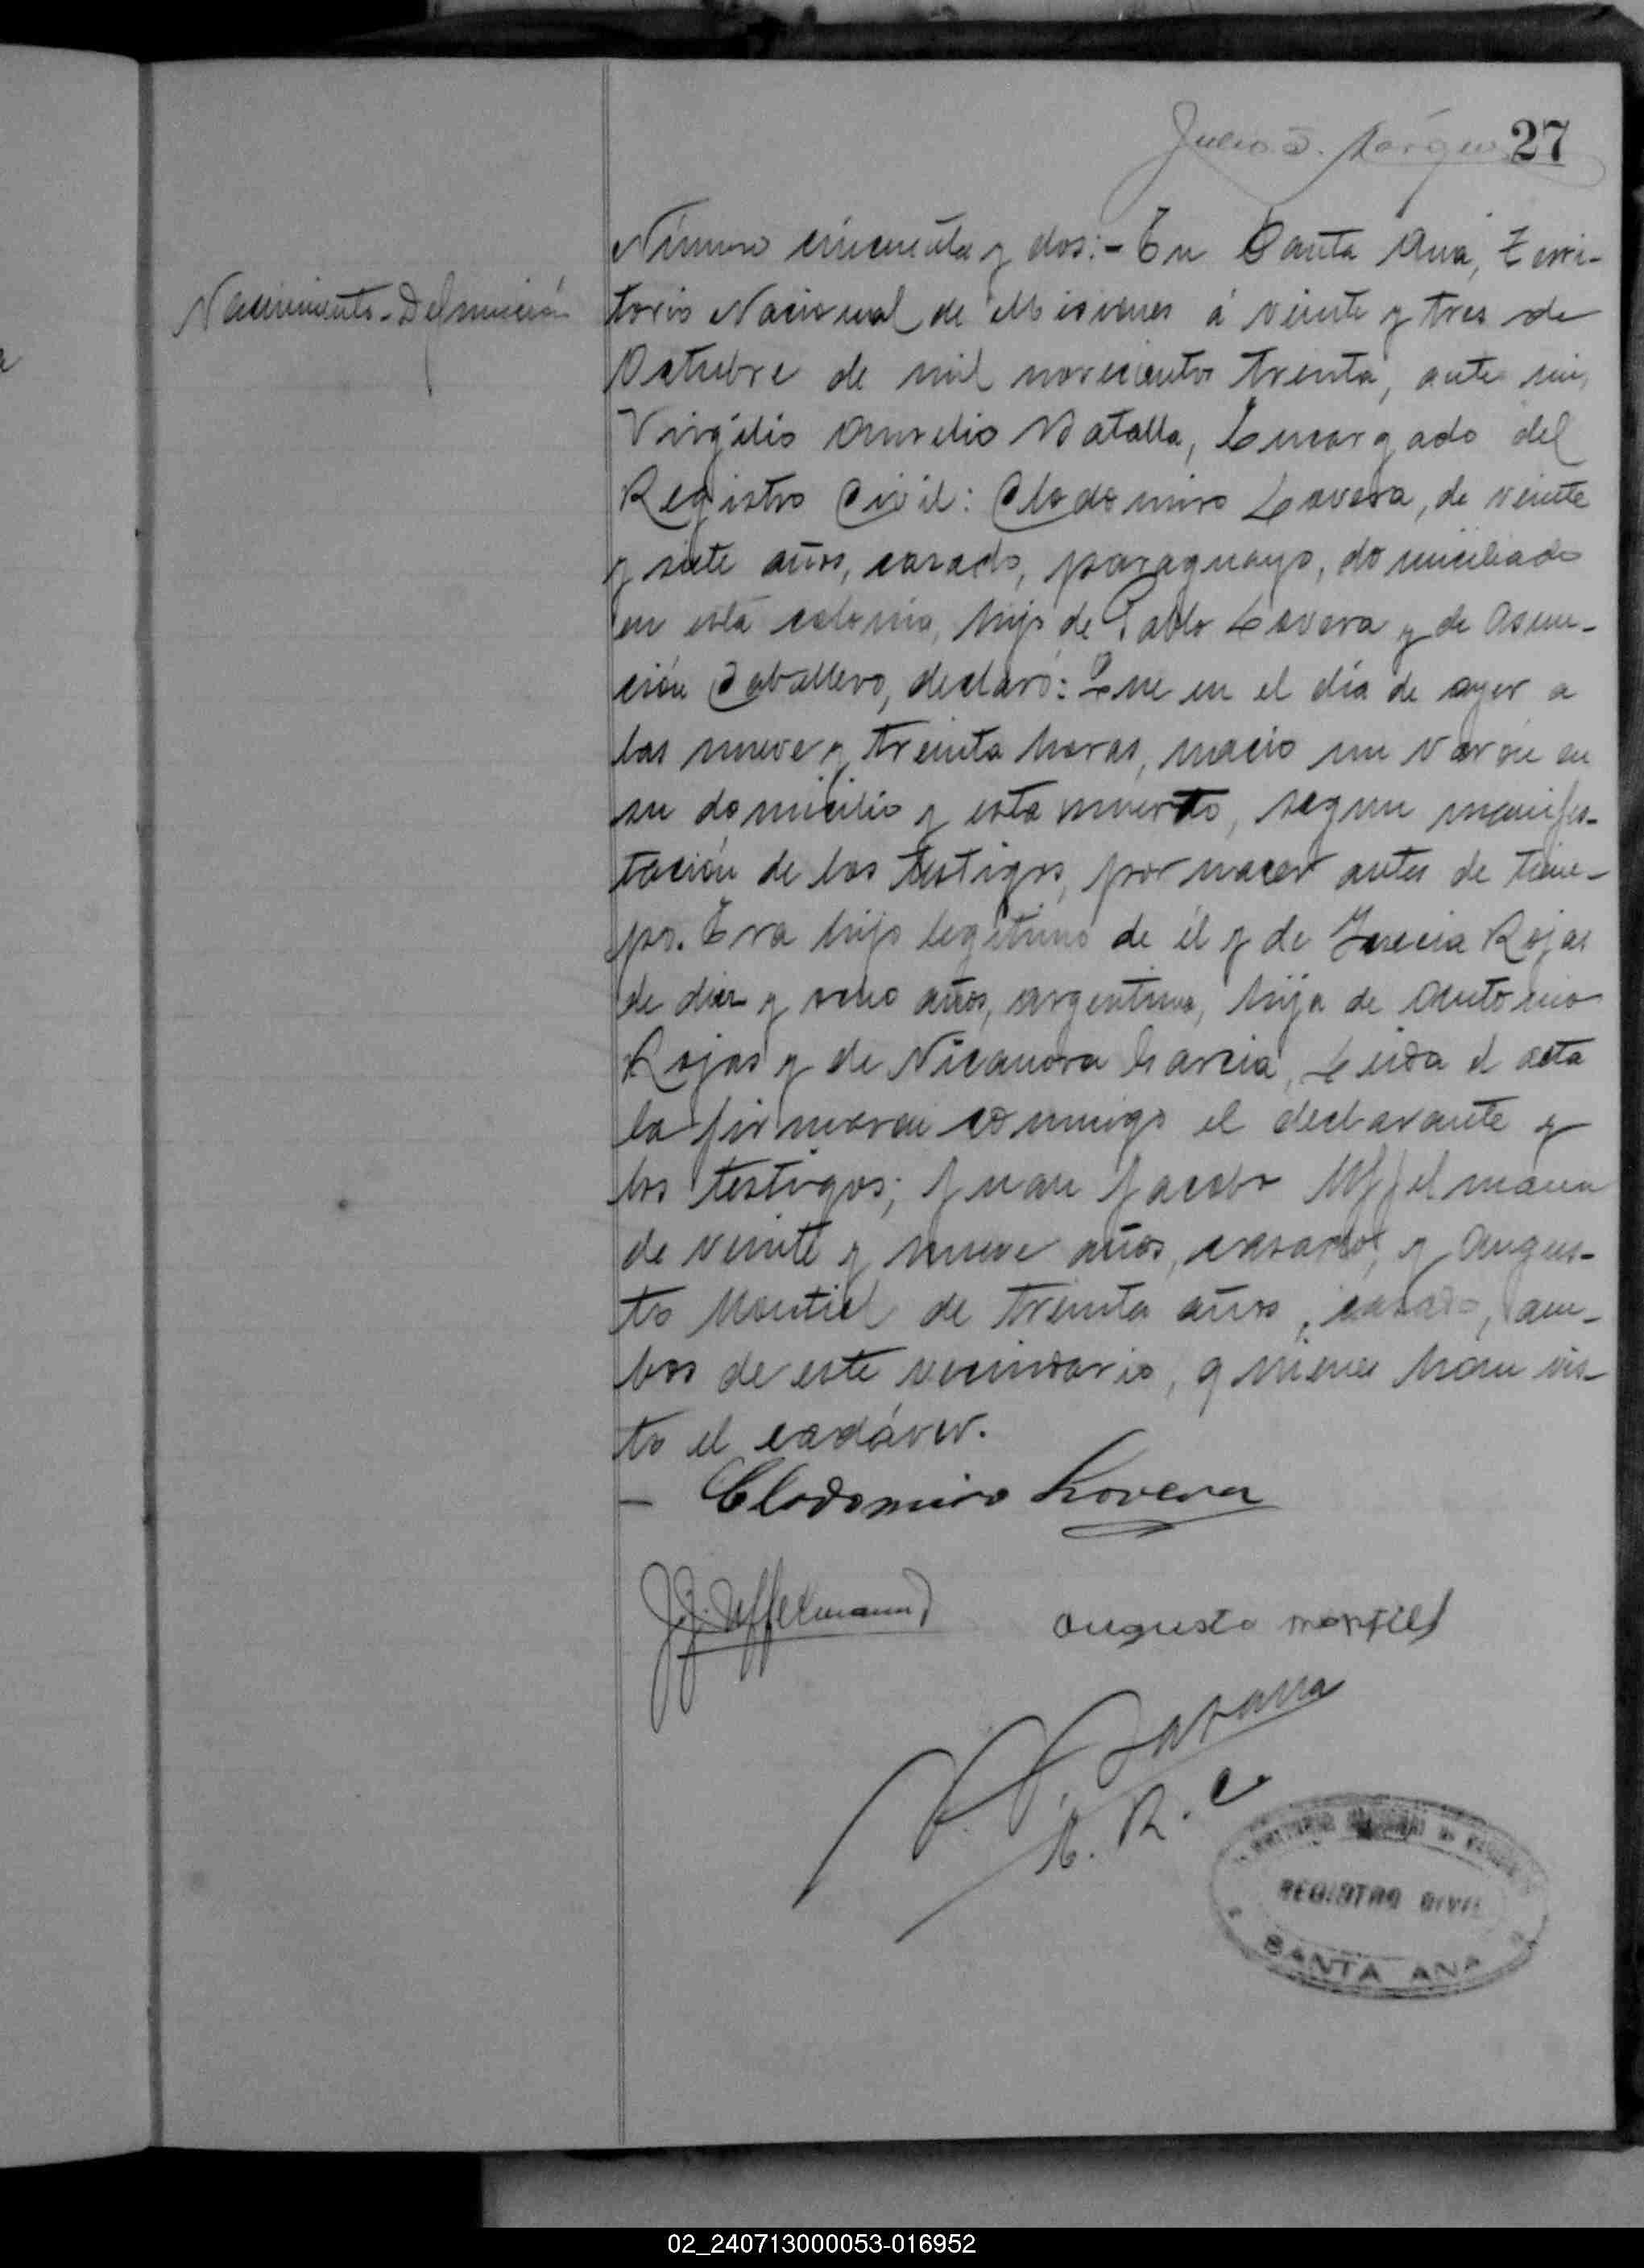 27
Nacimiento-Defunción
Número cincuenta y dos:- En Santa Ana, Terri-
torio Nacional de Misiones á veinte y tres de
Octubre de mil novecientos treinta, ante mi,
Virgilio Aurelio Batalla, Encargado del
Registro Civil: Clodomiro Lovera, de veinte
y siete años, casado, paraguayo, domiciliado
en esta colonia, hijo de Pablo Lovera y de Asun-
ción Caballero, declaró: Que en el día de ayer a
las nueve y treinta horas, nació un varón en
su domicilio y esta muerto, segun manifes-
tación de los testigos, por nacer antes de tiem-
po. Era hijo legítimo de él y de Rojas
de diez y ocho años, argentina, hija de Antonio
Rojas y de Nicanora Garcia, Leida el acta
la firmaron conmigo el declarante y
los testigos; Juan Jacobo Uffelmann
de veinte y nueve años, casado, y Augus-
to Montiel de treinta años, casado, am-
bos de este vecindario, quienes han vis-
to el cadáver.
- Clodomiro Lovera
J.J. Uffelmann
augusto montiel
E. R. C
REGISTRO CIVIL
SANTA ANA
02_240713000053-016952